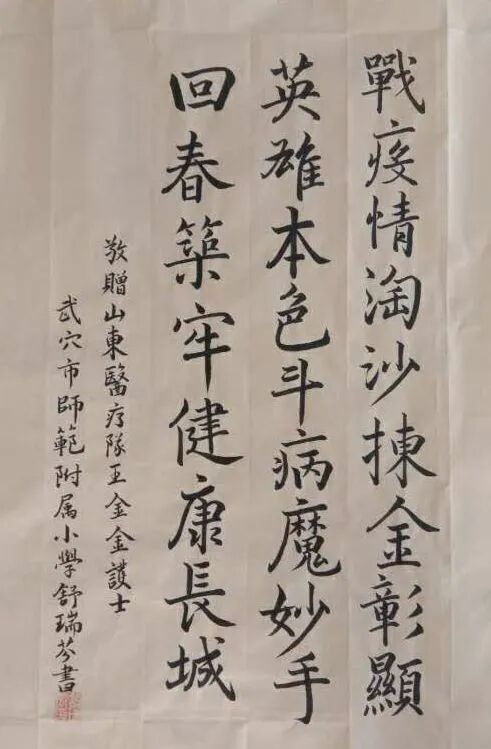 戰疫情淘沙揀金彰顯
英雄本色斗病魔妙手
回春築牢健康長城
敬贈山東醫疗隊王金金護士
武穴市師範附属小學舒瑞芬書